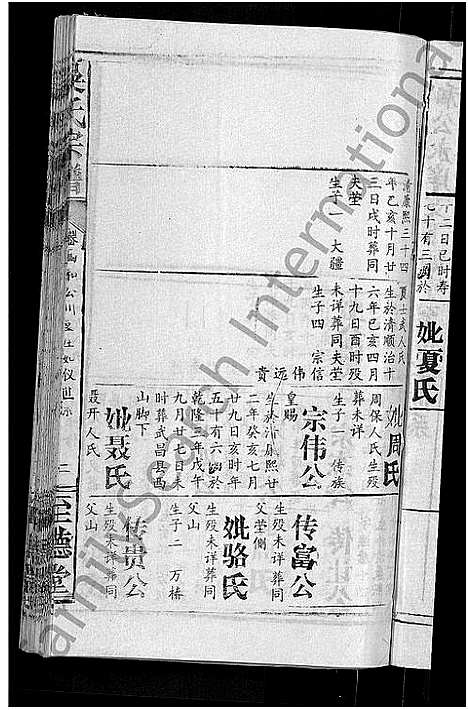 十二日巳时寿
七十有三圆於
妣夏氏
清康熙三十四
年乙亥十月廿
三日戌时葬同
夫茔
生子一 大疆
夏士武人氏
生於清顺治十
六年己亥四月
十九日酉时殁
未详葬同夫茔
生子四 宗信
伟 远 贵
妣周氏
周保人氏生殁
葬未详
生子一 传族
宗伟公
皇赐
生於清康熙廿
二年癸亥七月
廿九日亥时年
五十有六殁於
乾隆三年戊午
九月廿七日未
时葬武昌县西
山脚下
妣聂氏
聂开人氏
传富公
生殁未详葬同
父茔侧
妣骆氏
生殁未详葬同
父山
生子二 万椿
传贵公
生殁未详葬同
父山
吴氏宗谱
二
至德堂
FamilySearch International